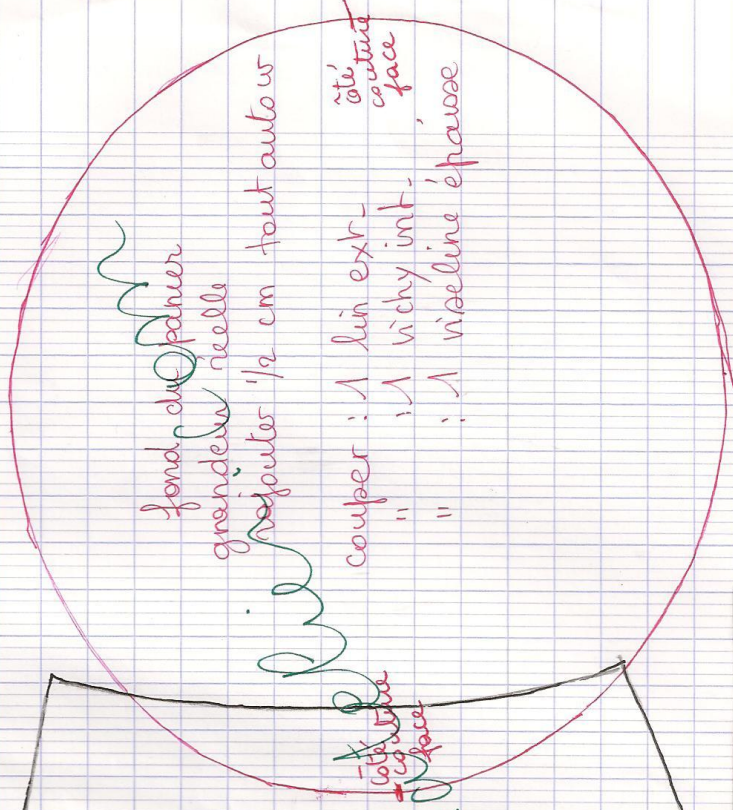 fond du panier
grandeur réelle
rajouter 1/2 cm tout autour
couper : 1 lin extr.
" : 1 vichy int.
" : 1 viseline épaisse
côté
couture
face
côté
couture
face